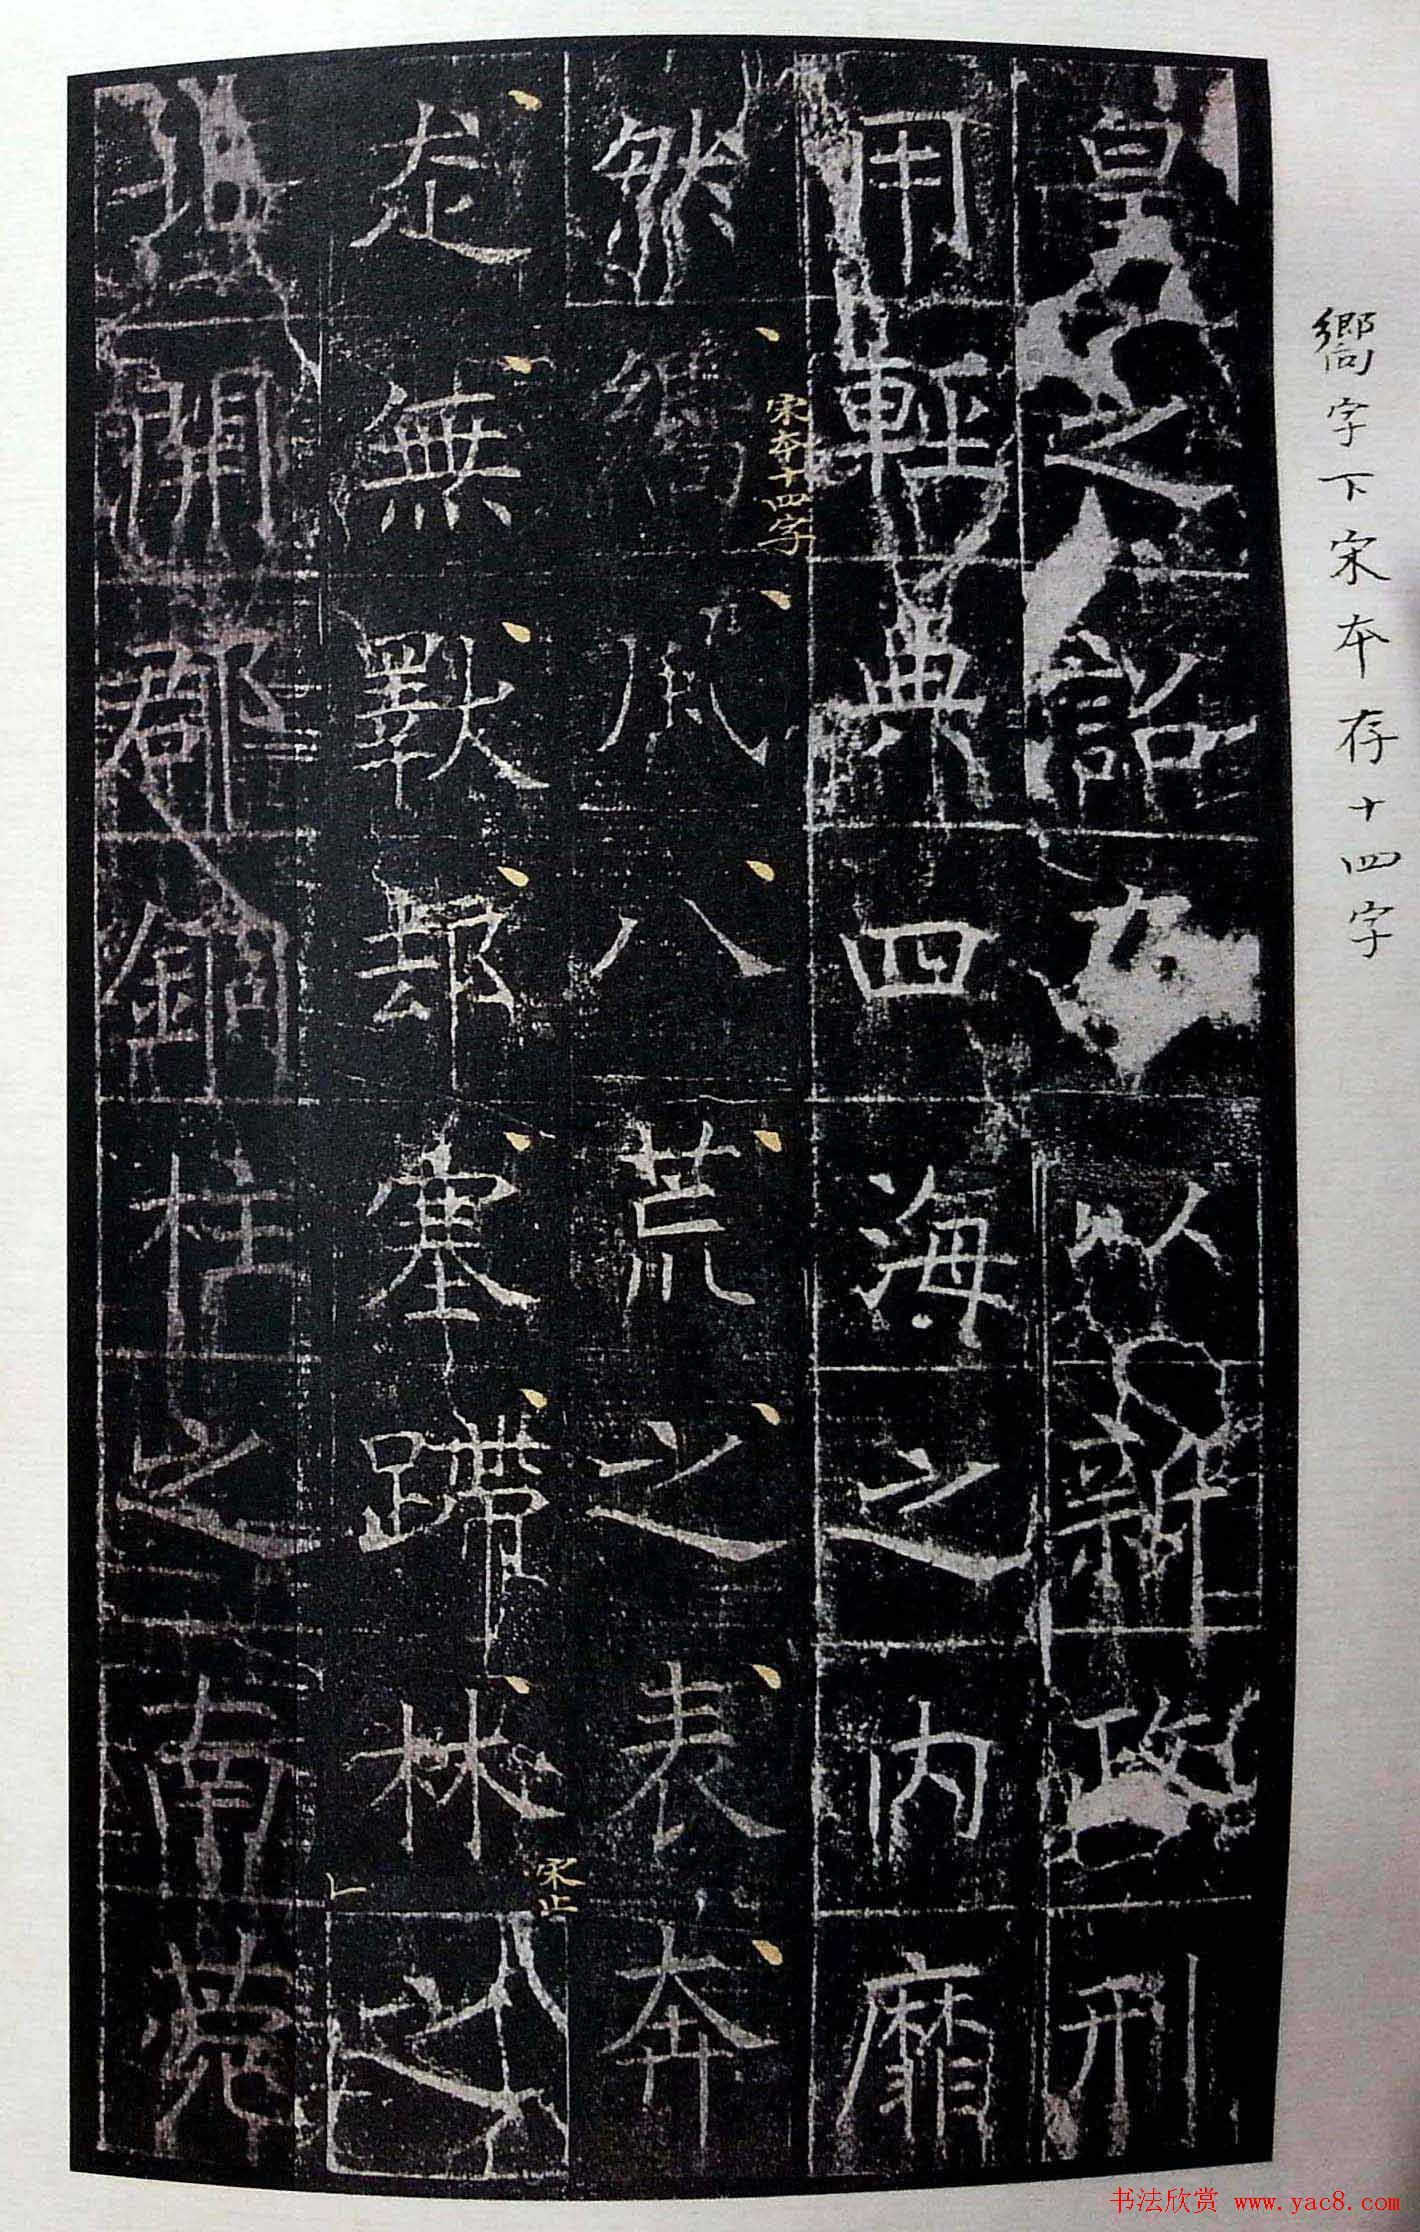 嚮字下宋本存十四字
皇之詔以新政刑
用輕典四海之内靡
宋本十四字
然嚮風八荒之表奔
宋止
走無斁鄣塞蹛林之
北開郡銅柱之南
书法欣赏 www.yac8.com